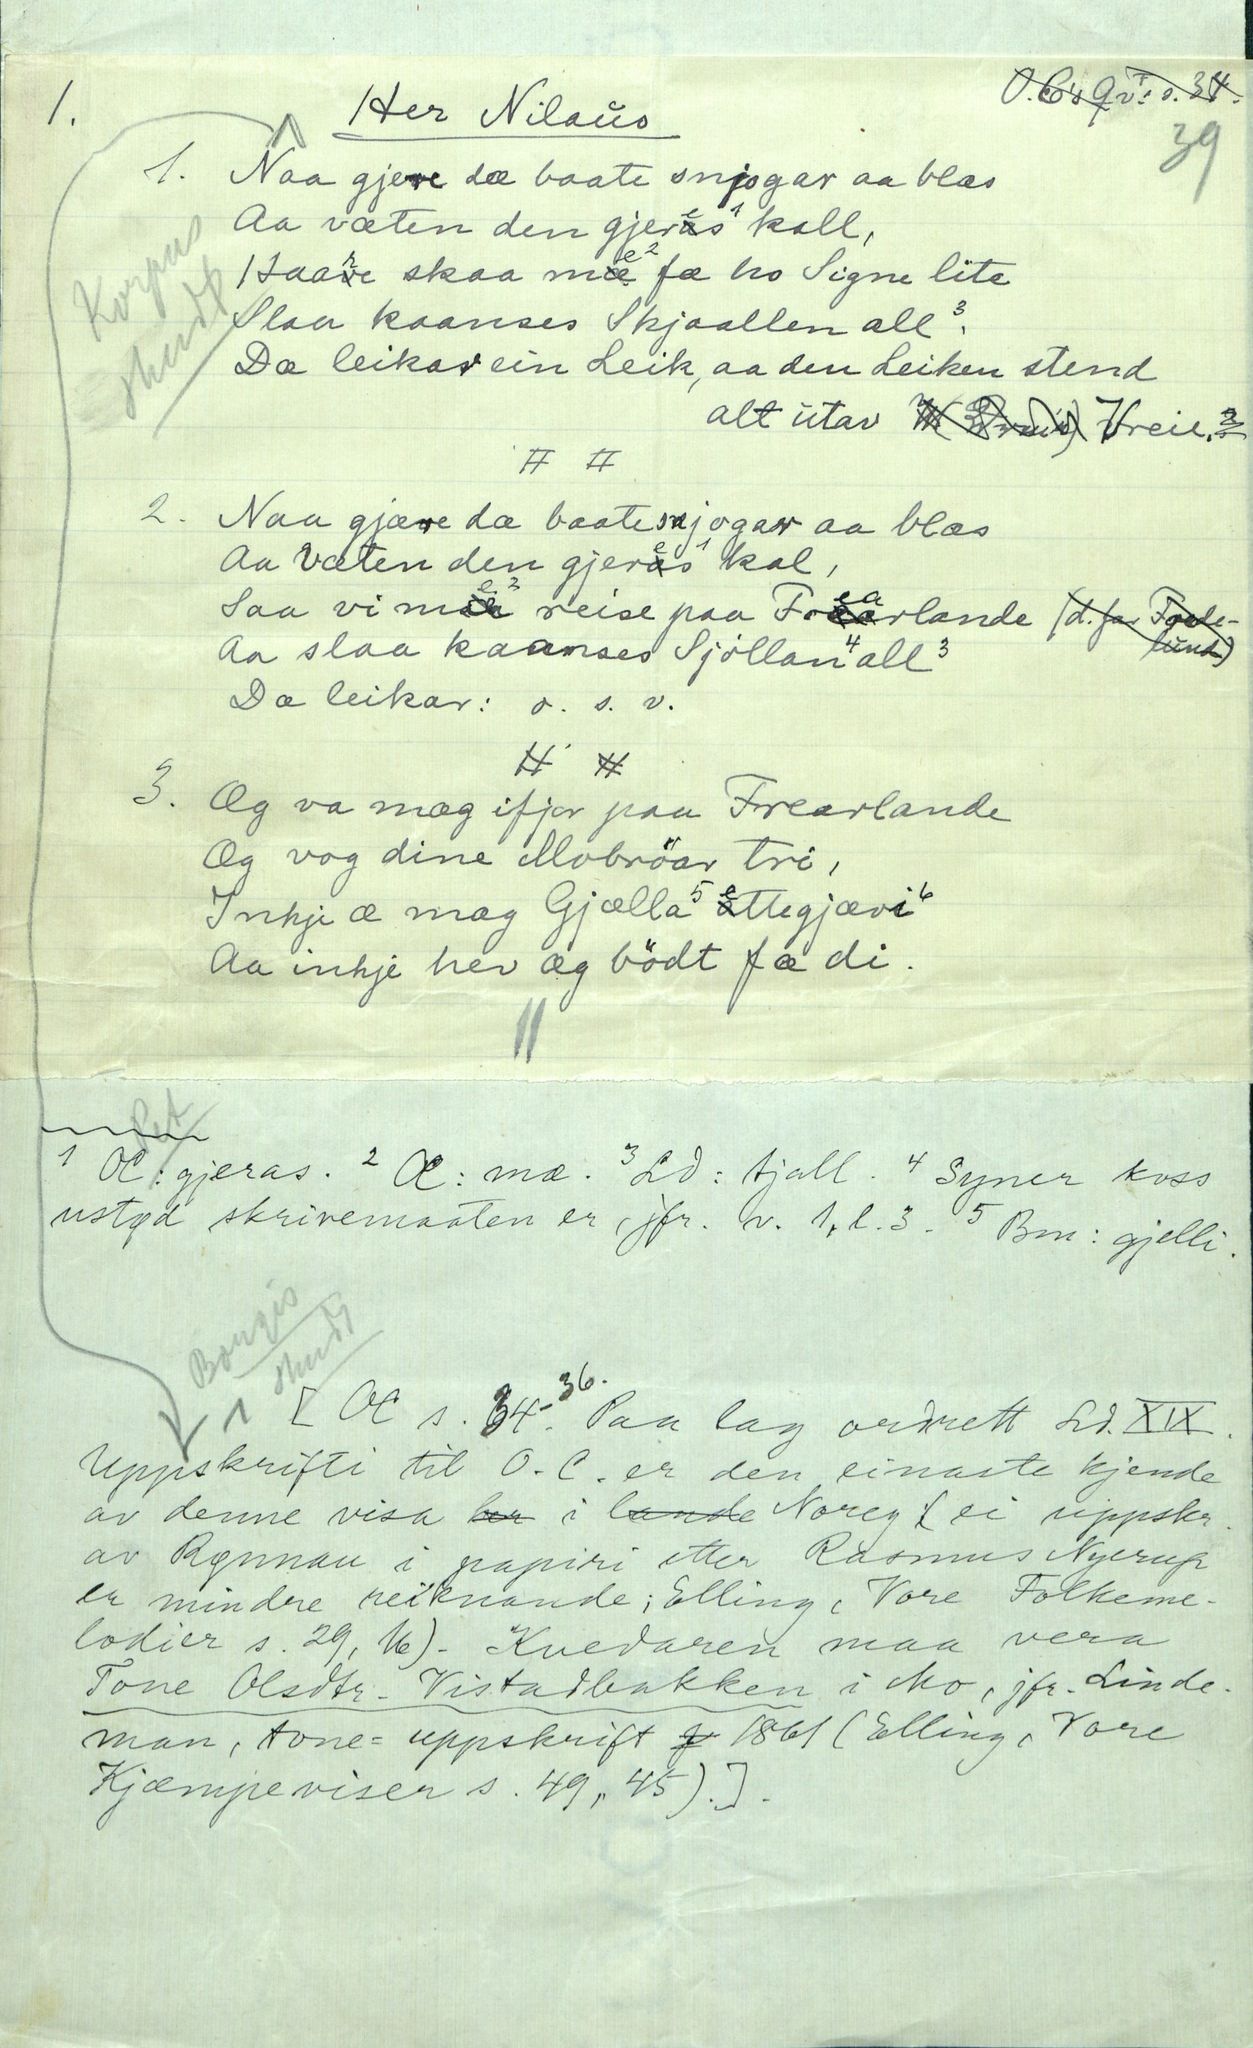 1. Her Nilaŭs
39
1. Naa gjere dæ baate snjogar aa blæs
Aa væten den gjeres¹ kall,
Haare skaa me² fæ ho Signe lite
Slaa kaanses Skjaallen all³.
Dæ leikar ein Leik, aa den Leiken stend
alt ŭtav Vreie.
2. Naa gjære dæ baate snjogar aa blæs
Aa Væten den gjeres¹ kal,
Saa vi me² reise paa Frearlande
Aa slaa kaanses Sjöllan⁴ all³
Dæ leikar: o. s. v.
3. Æg va mæg ifjor paa Frearlande
Æg vog dine Mobröar tri,
Inkje æ mæg Gjælla⁵ ettegjævi⁶
Aa inkje hev æg bödt fæ di.
Korpus
skudt
Pet
¹ OC: gjeras. ² OC: mæ. ³ Ld: tjall. ⁴ Syner koss
ustød skrivemaaten er, jfr. v. 1, l. 3. ⁵ Bm: gjelli.
Borgis
skudt
[OC s. 34-36. Paa lag ordrett Ld. XIX.
Uppskrifti til O. C. er den einaste kjende
av denne visa her i lande Noreg (ei uppskr.
av Rønnau i papiri etter Rasmus Nyerup
er mindre reiknande; Elling, Vore Folkeme-
lodier s. 29, 16). Kvedaren maa vera
Tone Olsdtr. Vistadbakken i Mo, jfr. Linde-
man, tone=uppskrift 1861 (Elling, Vore
Kjæmpeviser s. 49, 45).].